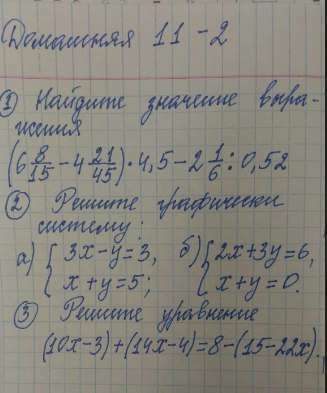 Домашняя 11-2
① Найдите значение выра-
жения
(6 8/15 - 4 21/45) · 4,5 - 2 1/6 : 0,52
② Решите графически
систему:
а) { 3x-y=3, x+y=5; б) { 2x+3y=6, x+y=0.
③ Решите уравнение
(10x-3)+(14x-4)=8-(15-22x).